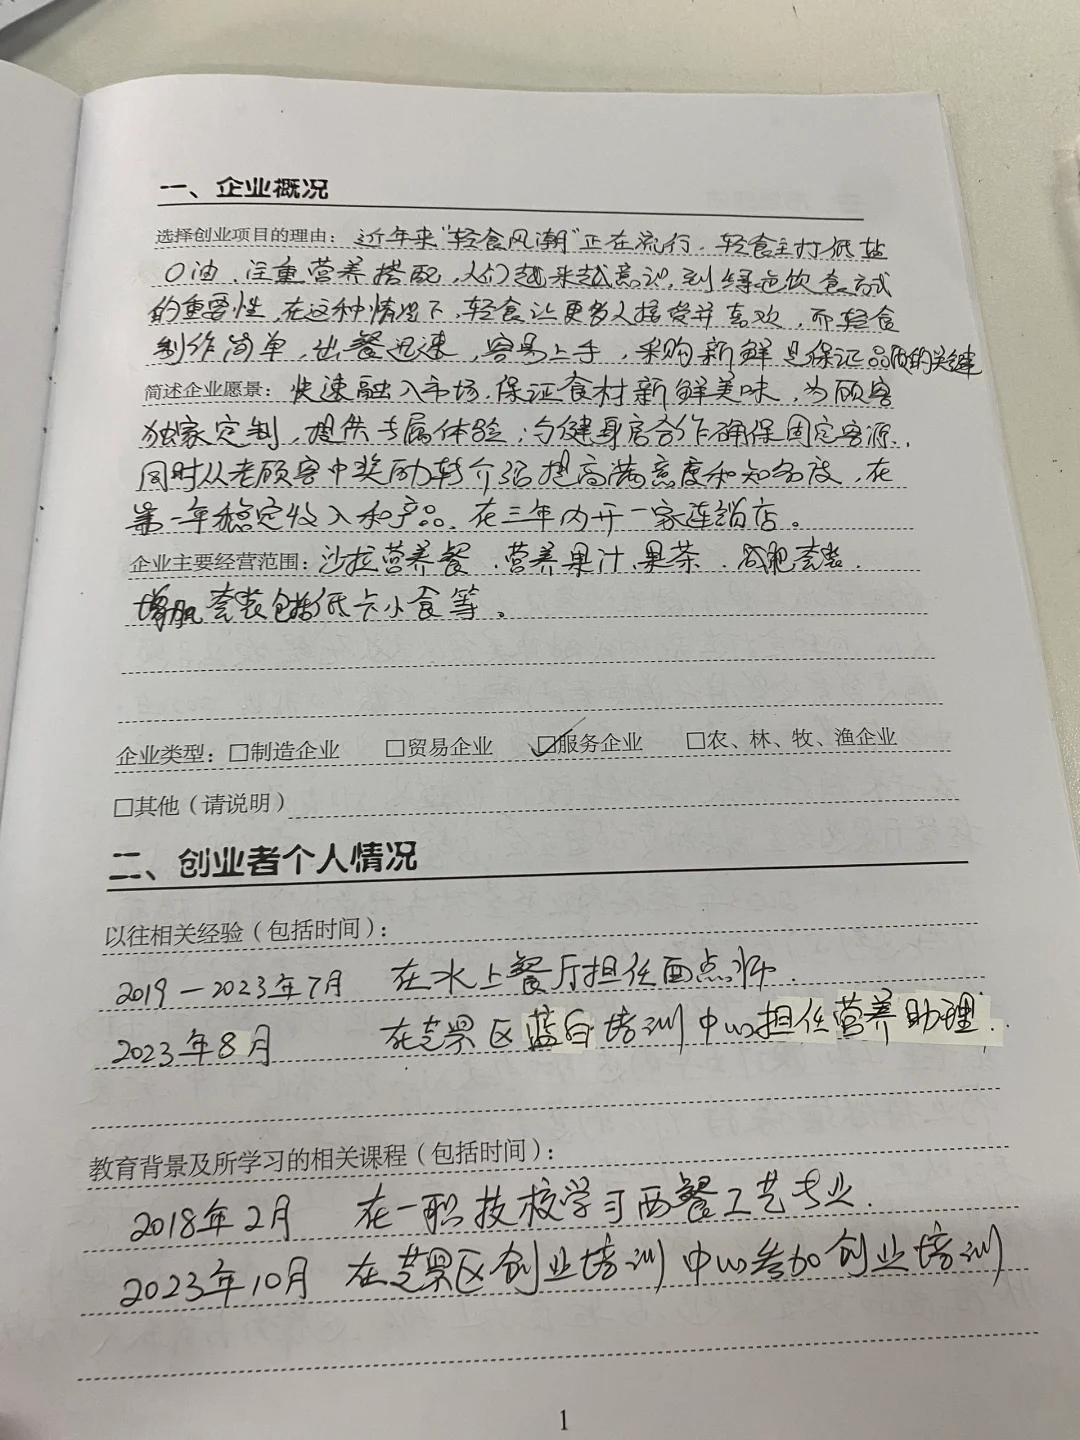 一、企业概况
选择创业项目的理由：近年来“轻食风潮”正在流行，轻食主打低盐
0油、注重营养搭配，人们越来越意识到绿色饮食方式
的重要性，在这种情况下，轻食让更多人接受并喜欢，而轻食
制作简单，出餐迅速，容易上手，采购新鲜是保证品质的关键
简述企业愿景：快速融入市场，保证食材新鲜美味，为顾客
独家定制，提供专属体验；与健身房合作确保固定客源，
同时从老顾客中奖励转介绍提高满意度和知名度，在
第一年稳定收入和产品，在三年内开一家连锁店。
企业主要经营范围：沙拉营养餐、营养果汁、果茶、减肥套装、
增肌套装包括低卡小食等。
企业类型：□制造企业 □贸易企业 ☑服务企业 □农、林、牧、渔企业
□其他（请说明）
二、创业者个人情况
以往相关经验（包括时间）：
2019－2023年7月 在水上餐厅担任面点师．
2023年8月 在芝罘区蓝白培训中心担任营养助理．
教育背景及所学习的相关课程（包括时间）：
2018年2月 在一职技校学习西餐工艺专业．
2023年10月 在芝罘区创业培训中心参加创业培训
1